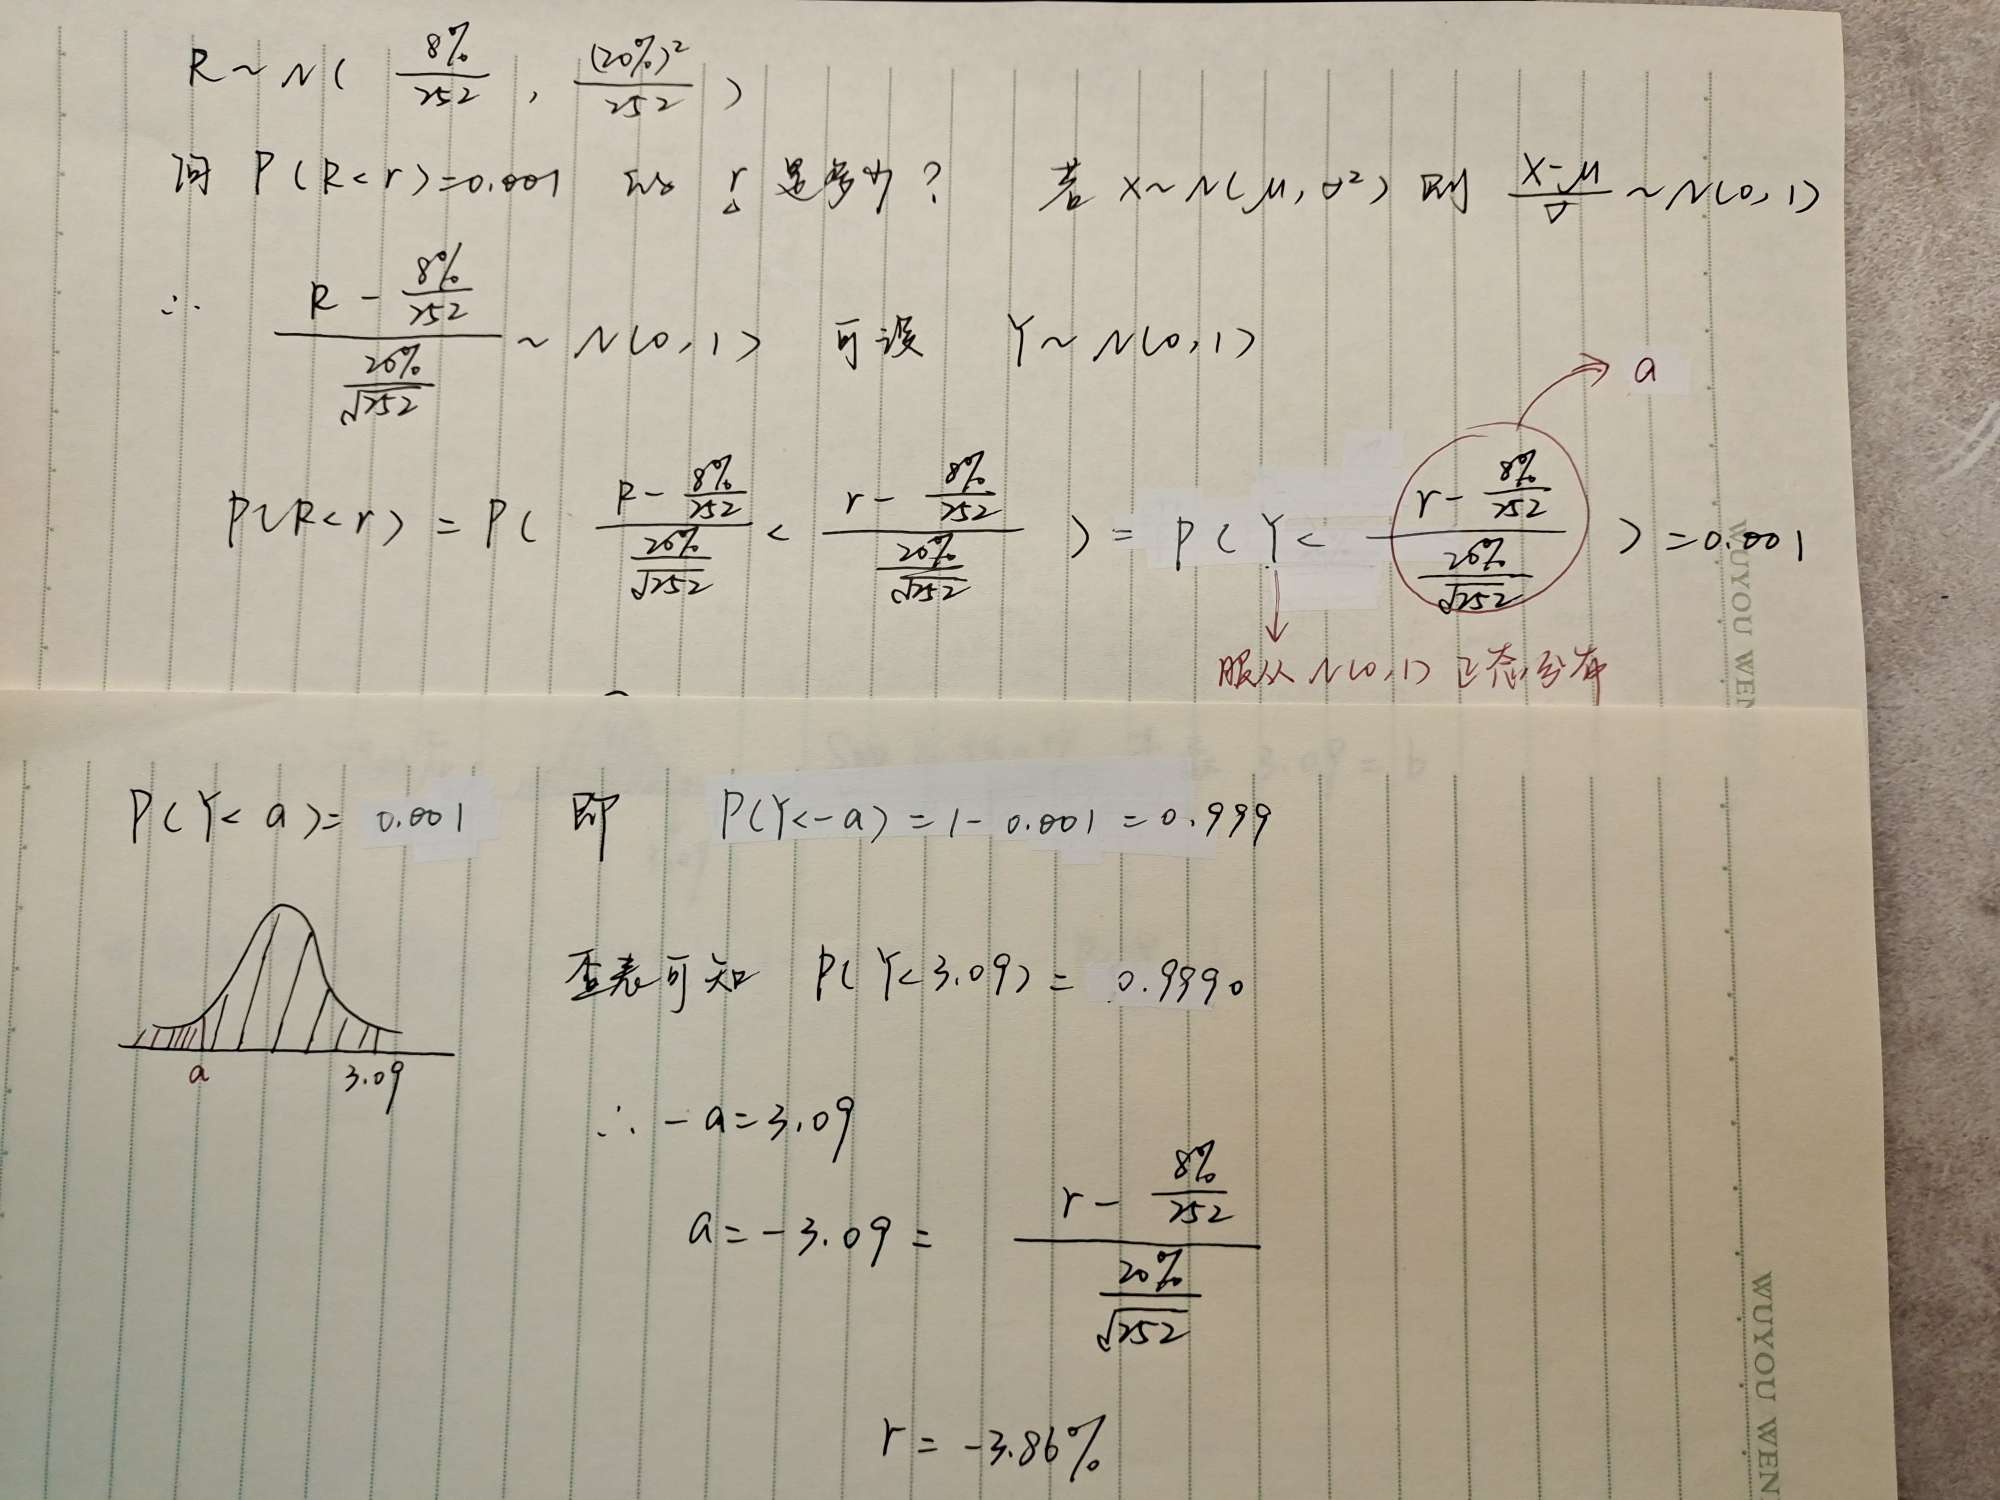 R ~ N( 8%/252 , (20%)²/252 )
问 P(R<r)=0.001 的 r 是多少? 若 X~N(μ,σ²) 则 (X-μ)/σ ~N(0,1)
∴ (R - 8%/252)/(20%/√252) ~ N(0,1) 可设 Y~N(0,1)
a
P(R<r) = P( (R - 8%/252)/(20%/√252) < (r - 8%/252)/(20%/√252) ) = P( Y < (r - 8%/252)/(20%/√252) ) =0.001
服从 N(0,1) 正态分布
P(Y< a)= 0.001 即 P(Y<-a) =1- 0.001 =0.999
查表可知 P(Y<3.09)= 0.9990
a 3.09
∴ -a=3.09
a=-3.09 = (r - 8%/252)/(20%/√252)
r = -3.86%
WUYOU WEN
WUYOU WEN